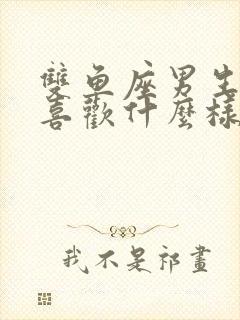 雙魚座男生
喜歡什麼樣
我不是祁畫